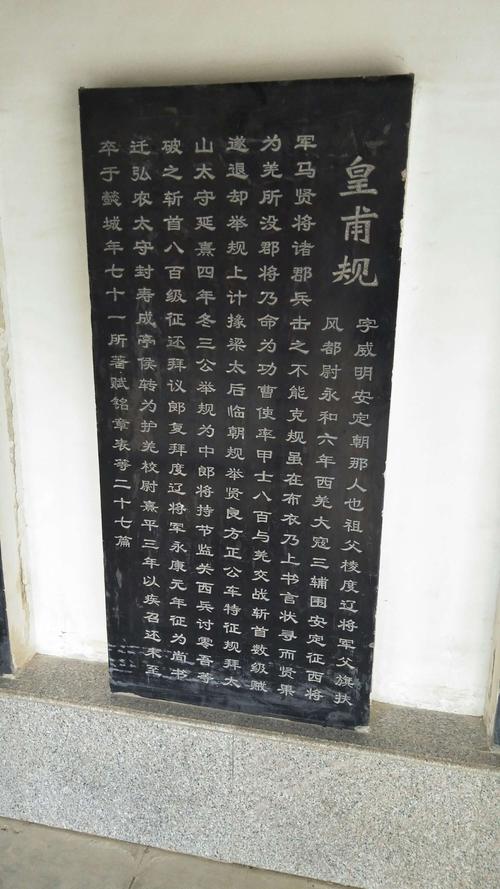 皇甫规
字威明安定朝那人也祖父棱度辽将军父旗扶
风都尉永和六年西羌大寇三辅围安定征西将
军马贤将诸郡兵击之不能克规虽在布衣乃上书言状寻而贤果
为羌所没郡将乃命为功曹使率甲士八百与羌交战斩首数级贼
遂退却举规上计掾梁太后临朝规举贤良方正公车特征规拜太
山太守延熹四年冬三公举规为中郎将持节监关西兵讨零吾等
破之斩首八百级征还拜议郎复拜度辽将军永康元年征为尚书
迁弘农太守封寿成亭侯转为护羌校尉熹平三年以疾召还未至
卒于懿城年七十一所著赋铭章表等二十七篇